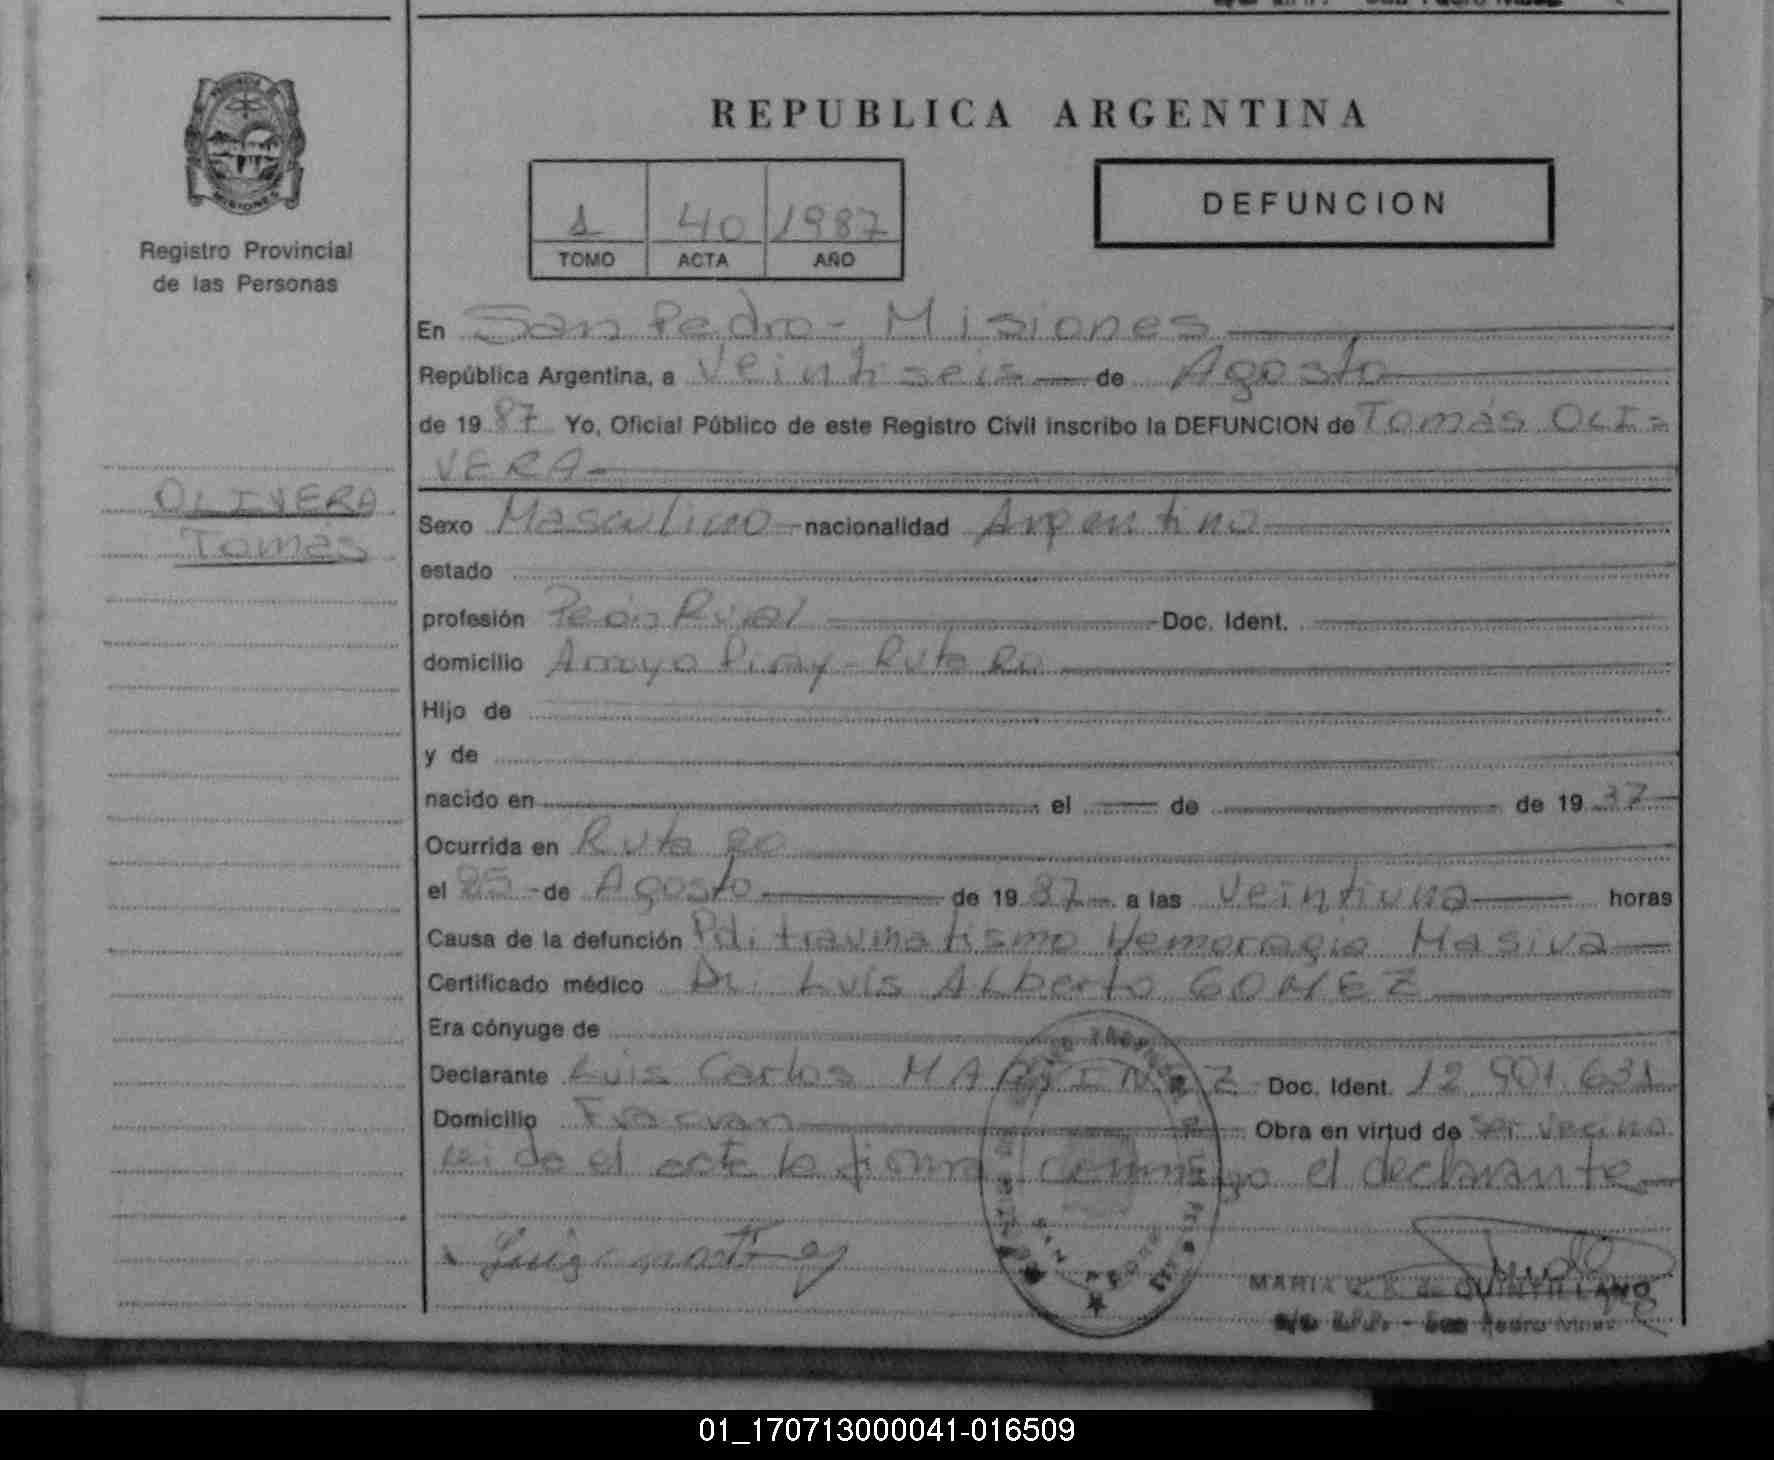 REPUBLICA ARGENTINA
1 40 1987
TOMO ACTA AÑO
DEFUNCION
MISIONES
Registro Provincial
de las Personas
OLIVERA
Tomás
En San Pedro - Misiones
República Argentina, a Veintiseis de Agosto
de 1987 Yo, Oficial Público de este Registro Civil inscribo la DEFUNCION de Tomás OLI=
VERA
Sexo Masculino nacionalidad Argentino
estado
profesión Peón Rural Doc. Ident.
domicilio Arroyo Piray - Ruta 20
Hijo de
y de
nacido en el de de 1937
Ocurrida en Ruta 20
el 25 de Agosto de 1987 a las Veintiuna horas
Causa de la defunción Politraumatismo Hemoragia Masiva
Certificado médico Dr. Luis ALberto GOMEZ
Era cónyuge de
Declarante Luis Carlos MARTINEZ Doc. Ident. 12.901.631
Domicilio Fracran Obra en virtud de ser vecino
Leida el acta la firma conmigo el declarante
MARIA de QUINTILLANO
San Pedro Mnes
01_170713000041-016509